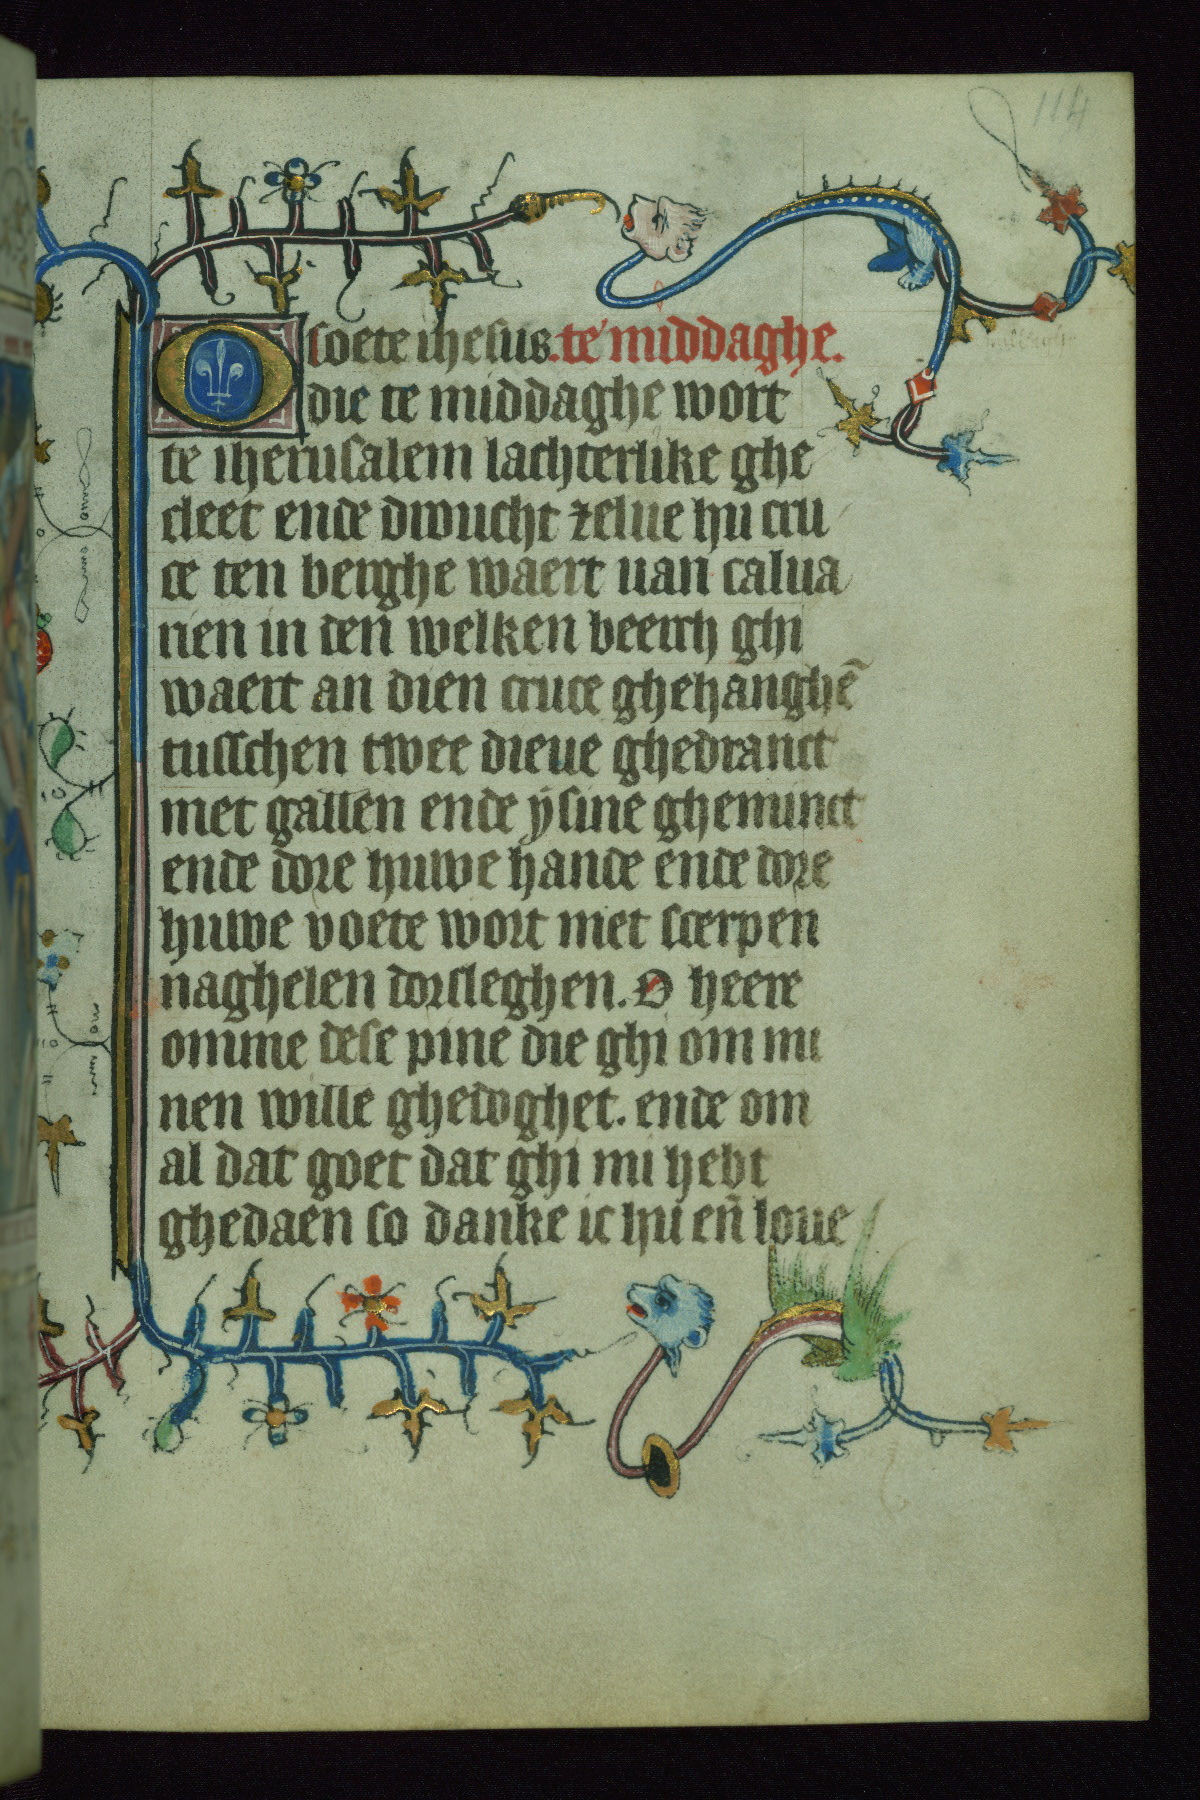 114
O soete ihesus. te middaghe.
die te middaghe wort
te iherusalem lachterlike ghe
cleet ende drwucht zelue hu cru
ce ten berghe waert uan calua
rien in den welken beerch ghi
waert an dien cruce ghehanghē
tusschen twee dieue ghedranct
met gallen ende ysine ghemmct
ende dore huwe hande ende dore
huwe voete wort met scerpen
naghelen dorsleghen. O heere
omme dese pine die ghi om mi
nen wille ghedoghet. ende om
al dat goet dat ghi mi hebt
ghedaen so danke ic hu en̄ loue